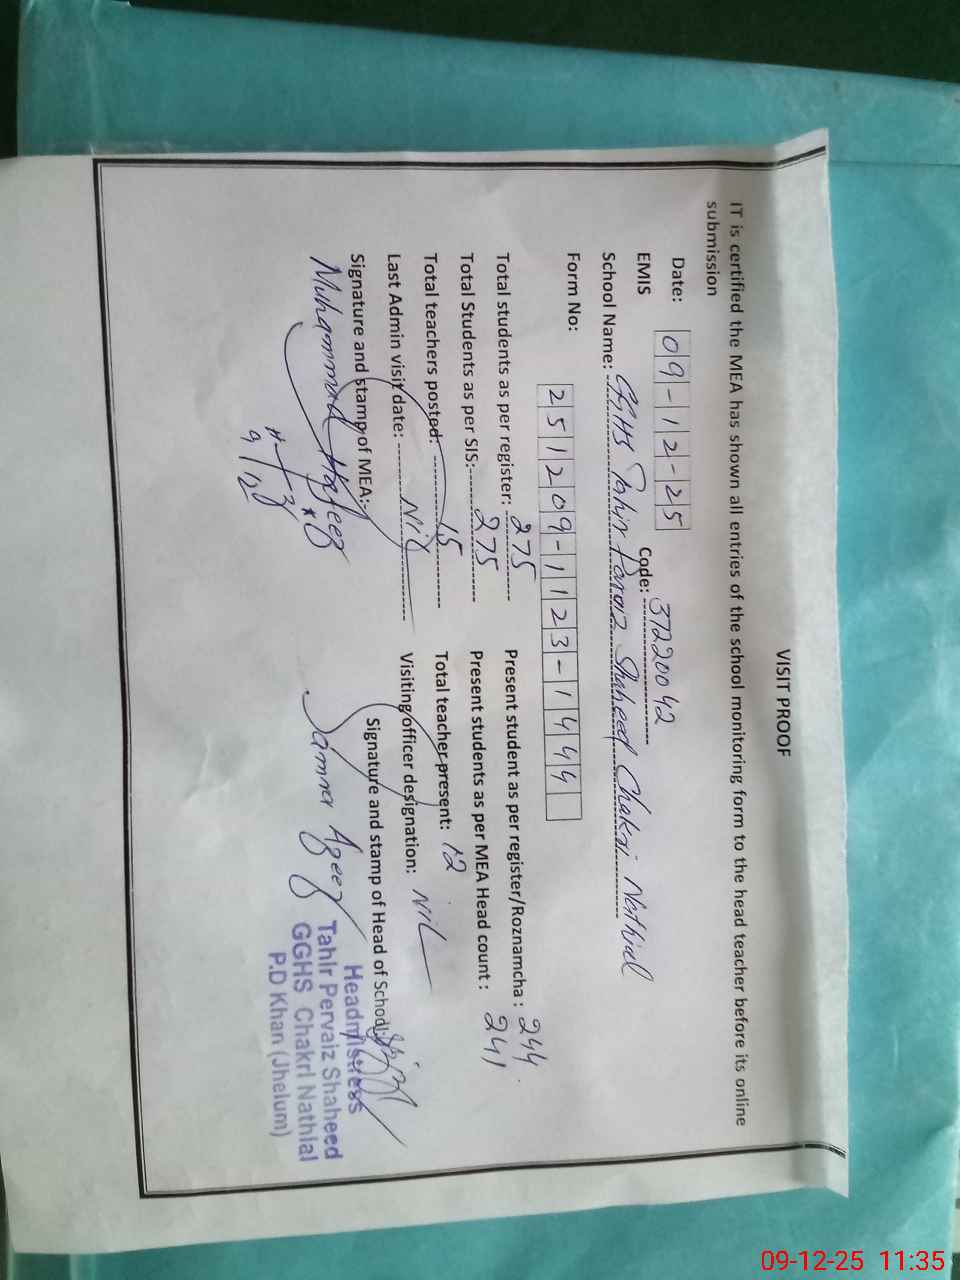 VISIT PROOF
IT is certified the MEA has shown all entries of the school monitoring form to the head teacher before its online
submission
Date: 09-12-25
EMIS Code: 37220042
School Name: GGHS Tahir Paraiz Shaheed Chakri Nathial
Form No: 251209-1123-1444
Total students as per register: 275 Present student as per register/Roznamcha : 244
Total Students as per SIS: 275 Present students as per MEA Head count : 241
Total teachers posted: 15 Total teacher present: 12
Last Admin visit date: Nil Visiting officer designation: NiL
Signature and stamp of MEA: Signature and stamp of Head of School:
Muhammad Hafeez Samra Azeez
9/12
Headmistress
TahIr Pervaiz Shaheed
GGHS ChakrI NathIal
P.D Khan (Jhelum)
09-12-25 11:35